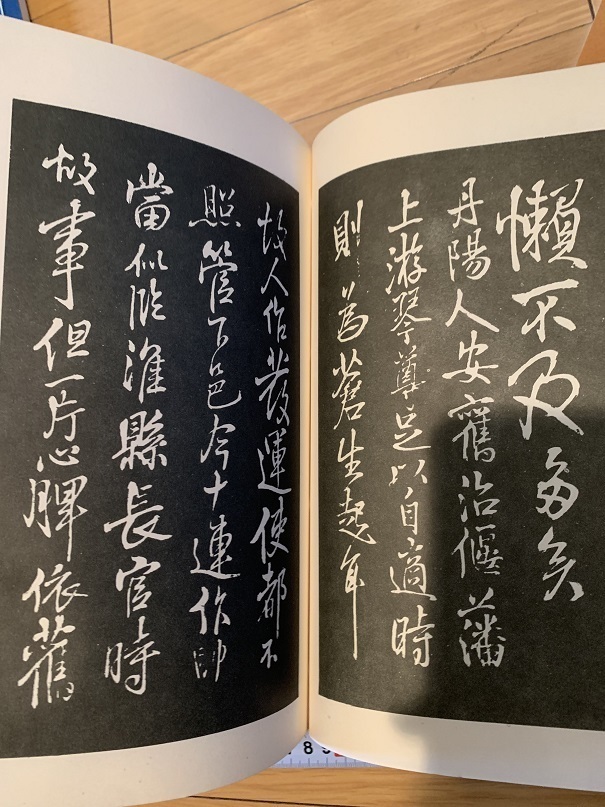 懶不及多矣
丹陽人安舊治偃藩
上游琴尊足以自適時
則為蒼生起耳
故人作發運使都不
照管下邑今十連作帥
當似臨淮縣長官時
故事但一片心脾依舊
8 9